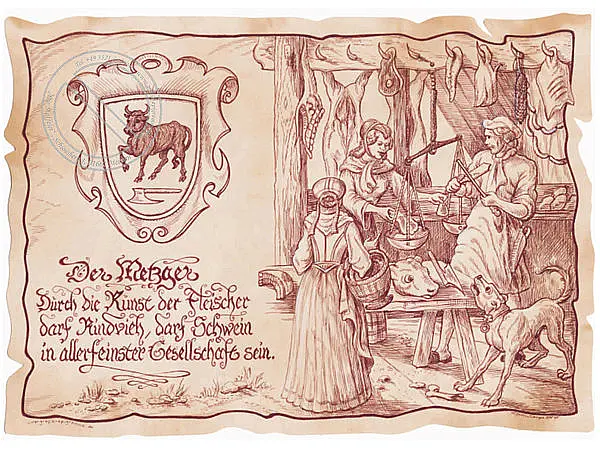 Der Metzger
Durch die Kunst der Fleischer
darf Rindvieh, darf Schwein
in allerfeinster Gesellschaft sein.